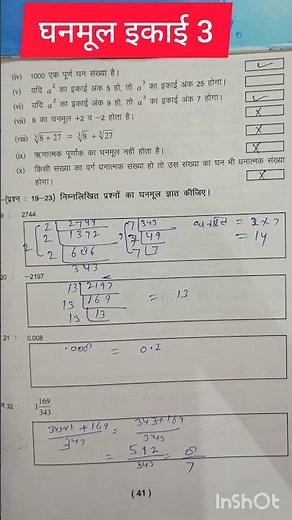 घनमूल इकाई 3
(iv) 1000 एक पूर्ण घन संख्या है। ✓
(v) यदि a² का इकाई अंक 5 हो, तो a³ का इकाई अंक 25 होगा।
(vi) यदि a² का इकाई अंक 9 हो, तो a³ का इकाई अंक 7 होगा। ✓
(vii) 8 का घनमूल +2 व -2 होता है। X
(viii) ∛8 + 27 = ∛8 + ∛27 X
(ix) ऋणात्मक पूर्णांक का घनमूल नहीं होता है। X
(x) किसी संख्या का वर्ग धनात्मक संख्या हो तो उस संख्या का घन भी धनात्मक संख्या
होगा। X
(प्रश्न : 19–23) निम्नलिखित प्रश्नों का घनमूल ज्ञात कीजिए।
9 : 2744
2 2744 7 343
2 1372 7 49
2 686 7 7
343
= 2 x 7
= 14
20 : -2197
13 2197
13 169
13 13
= 13
21 : 0.008
.008 = 0.2
22 : 1 169/343
343x1 + 169 / 343 = 343+169 / 343
= 512 / 343 = 8 / 7
( 41 )
InShOt